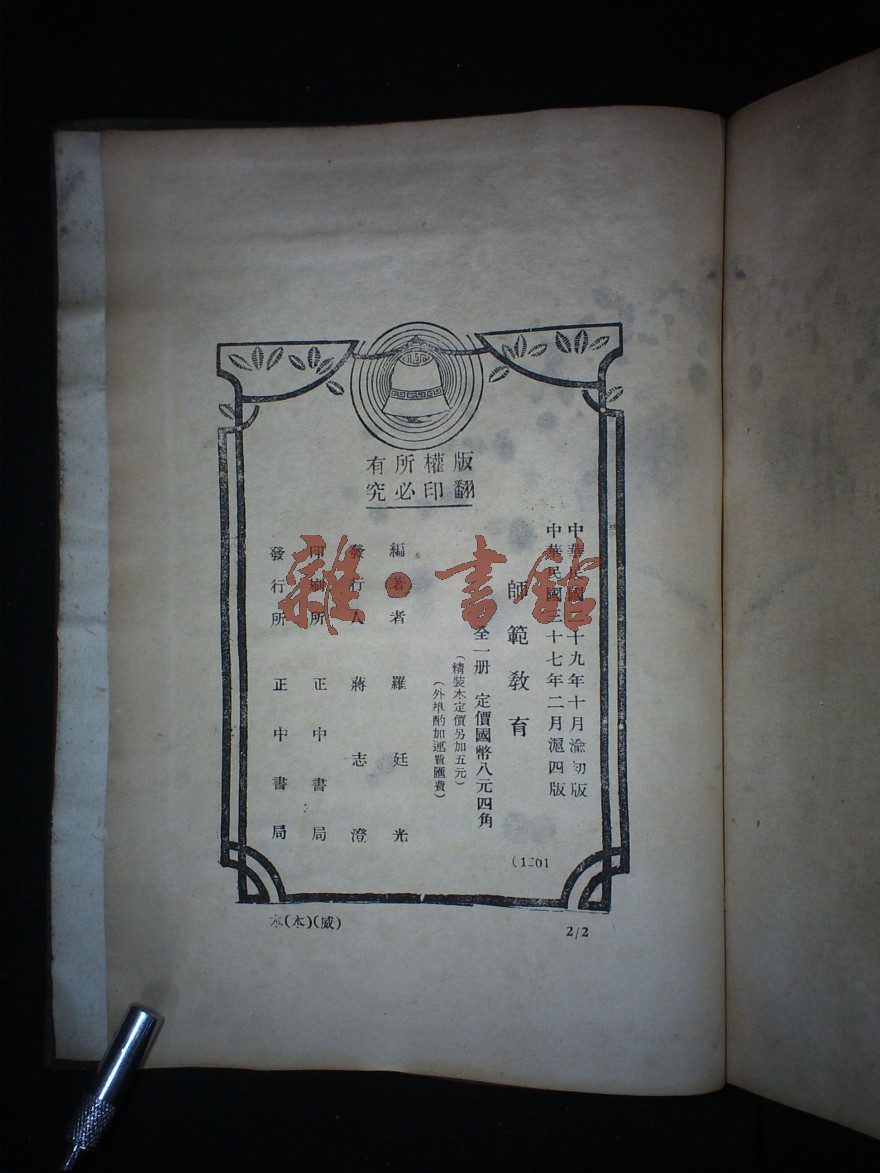 版權所有
翻印必究
中華民國二十九年十月渝初版
中華民國三十七年二月滬四版
師範教育
全一册 定價國幣八元四角
(精裝本定價另加五元)
(外埠酌加運費匯費)
編著者 羅廷光
發行人 蔣志澄
印刷所 正中書局
發行所 正中書局
(1201
雜·書館
(本)(威)
2/2